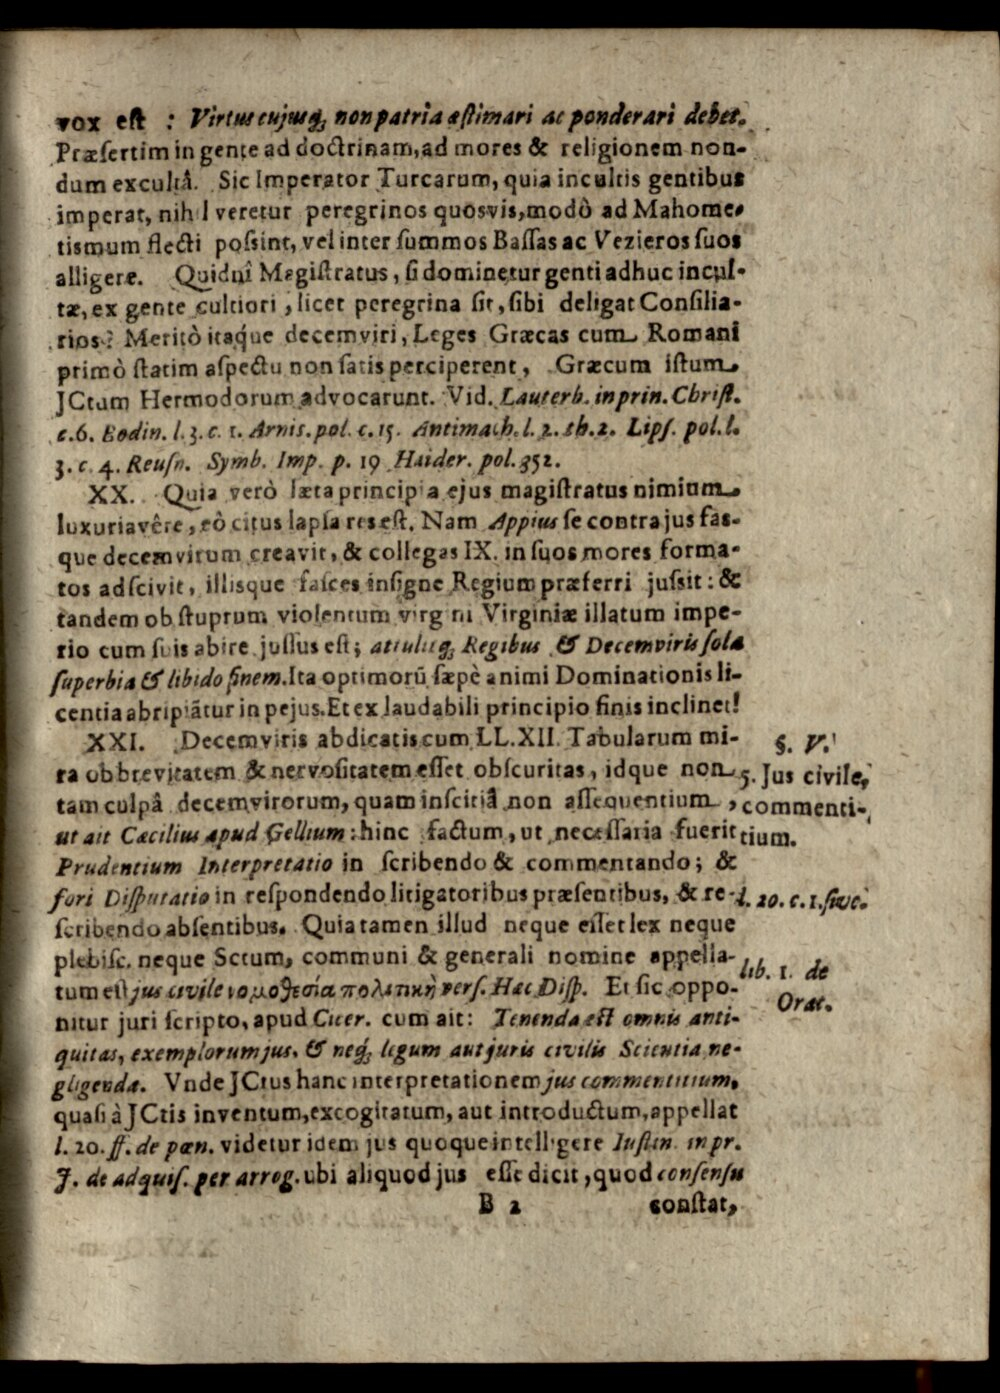 vox est : Virtus cujusq; non patriâ æstimari ac ponderari debet.
Præsertim in gente ad doctrinam, ad mores & religionem non-
dum excultâ. Sic Imperator Turcarum, quia incultis gentibus
imperat, nihil veretur peregrinos quosvis, modò ad Mahome-
tismum flecti possint, vel inter summos Bassas ac Vezieros suos
alligere. Quidnî Magistratus, si dominetur genti adhuc incul-
tæ, ex gente cultiori, licet peregrina sit, sibi deligat Consilia-
rios? Meritò itaque decemviri, Leges Græcas cum Romani
primò statim aspectu non satis perciperent, Græcum istum
JCtum Hermodorum advocarunt. Vid. Lauterb. in prin. Christ.
c. 6. Bodin. l. 3. c. 1. Arnis. pol. c. 15. Antimach. l. 2. th. 2. Lips. pol. l.
3. c. 4. Reusn. Symb. Imp. p. 19 Haider. pol. 352.
XX. Quia verò læta principia ejus magistratus nimium
luxuriavêre, eò citus lapsa res est. Nam Appius se contra jus fas-
que decemvirum creavit, & collegas IX. in suos mores forma-
tos adscivit, illisque fasces insigne Regium præferri jussit: &
tandem ob stuprum violentum virgini Virginiæ illatum impe-
rio cum suis abire jussus est; attulitq; Regibus & Decemviris sola
superbia & libido finem. Ita optimorũ sæpè animi Dominationis li-
centia abripiãtur in pejus. Et ex laudabili principio finis inclinet!
XXI. Decemviris abdicatis cum LL. XII. Tabularum mi-
ra ob brevitatem & nervositatem esset obscuritas, idque non
tam culpâ decemvirorum, quam inscitiâ non assequentium,
ut ait Cæcilius apud Gellium: hinc factum, ut necessaria fuerit
Prudentium Interpretatio in scribendo & commentando; &
fori Disputatio in respondendo litigatoribus præsentibus, & re-
scribendo absentibus. Quia tamen illud neque esset lex neque
plebisc. neque Sctum, communi & generali nomine appella-
tum est jus civile νομοθεσία πολιτικὴ vers. Hac Disp. Et sic oppo-
nitur juri scripto, apud Cicer. cum ait: Tenenda est omnis anti-
quitas, exemplorum jus, & neq; legum aut juris civilis Scientia ne-
gligenda. Vnde JCtus hanc interpretationem jus commentitium,
quasi à JCtis inventum, excogitatum, aut introductum, appellat
l. 20. ff. de pœn. videtur idem jus quoque intelligere Iustin. in pr.
J. de adquis. per arrog. ubi aliquod jus esse dicit, quod consensu
B 2 constat,
§. V.
5. Jus civile,
commenti-
tium.
l. 20. c. 1. sive
lib. 1. de
Orat.